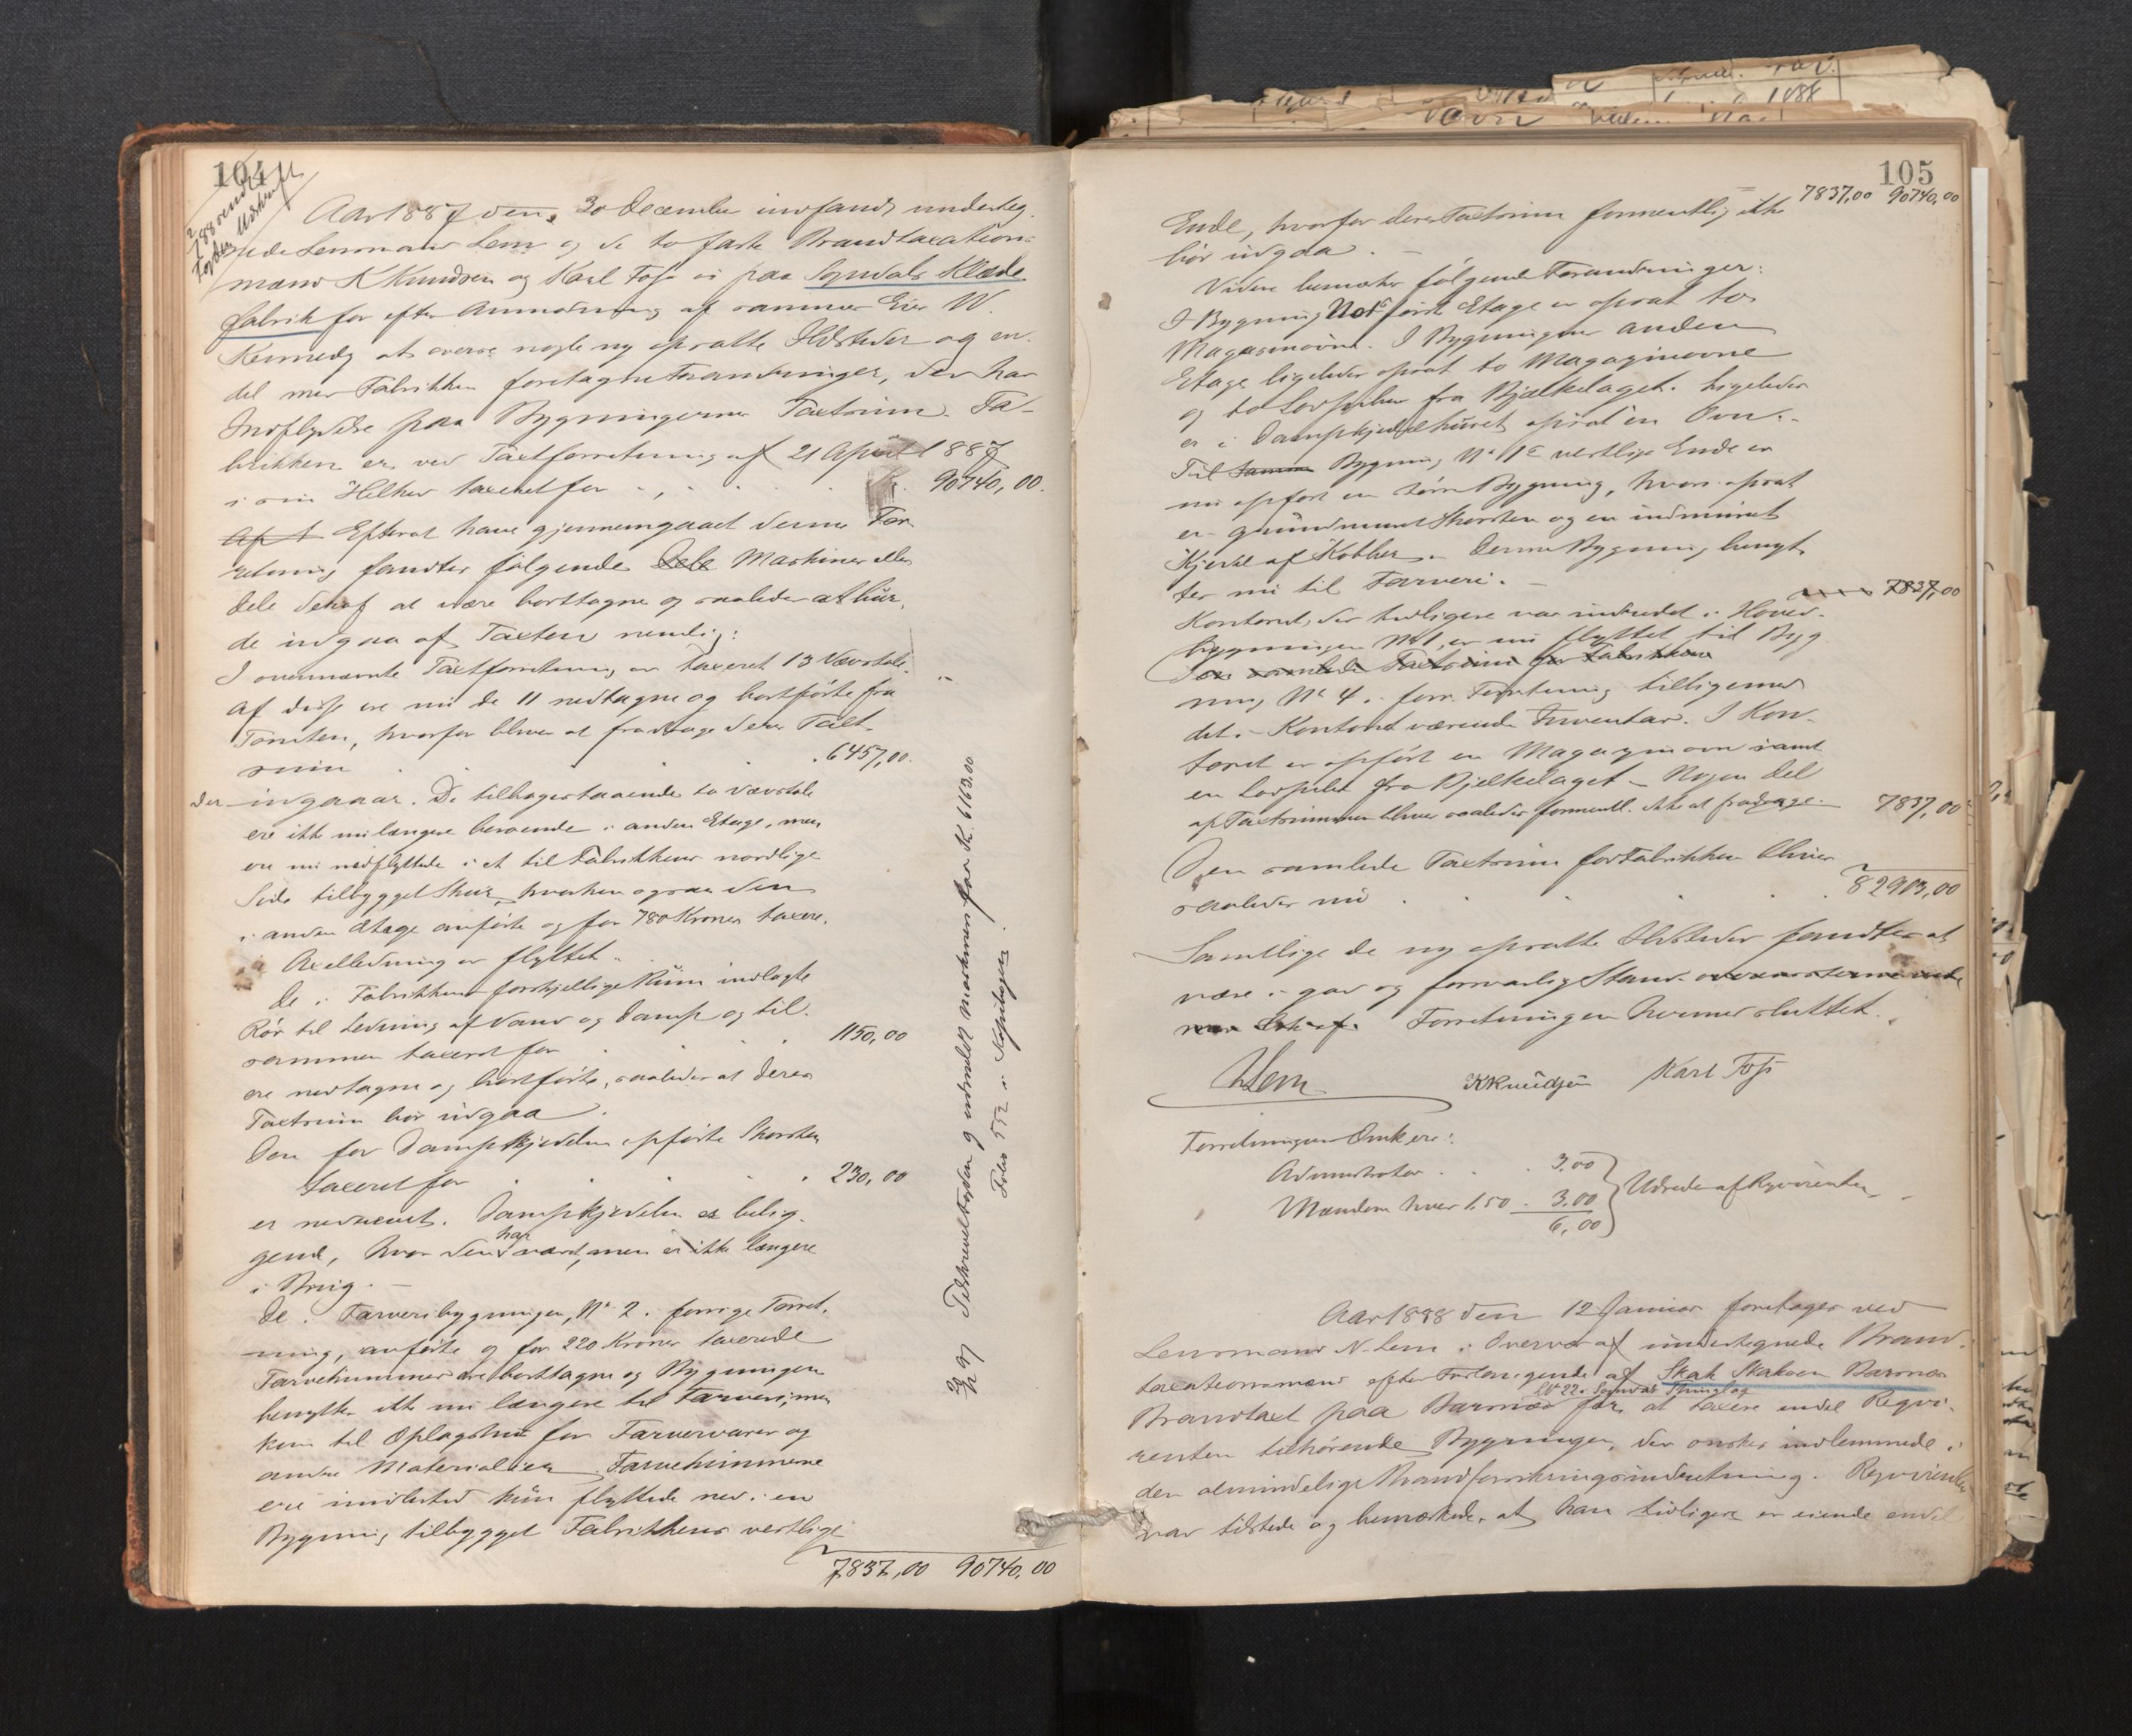 104
Aar 1887 den 30 December indfandt underteg-
nede Lensmand Lem og de to faste Brandtaxations-
mænd K Knudsen og Karl Foss i paa Sogndals Klæde
fabrik for efter Anmodning af sammes Eier W.
Kennedy at overse nogle ny opsatte Ildsteder og en-
del med Fabrikken foretagne Forandringer, der har
Indflydelse paa Bygningernes Taxtsum. Fa-
brikken er ved Taxtforretning af 21 April 1887
i sin Helhed taxeret for 90740,00.
Efterat have gjennemgaaet denne For
retning fandtes følgende Dele Maskiner eller
dele deraf at være borttagne og saaledes at bur-
de udgaa af Taxten nemlig:
I overnævnte Taxtforretning er taxeret 13 Vævstole.
Af disse ere nu de 11 nedtagne og bortførte fra
Tomten, hvorfor bliver at fradrage deres Taxt-
sum 6457,00.
der udgaaar. De tilbagestaaende to Vævstole
ere ikke nu længere beroende i anden Etage, men
ere nu nedflyttede i et til Fabrikkens nordlige
Side tilbygget Skur, hvorhen ogsaa den
i anden Etage anførte og for 780 Kroner taxere-
de Axelledning er flyttet.
De i Fabrikkens forskjellige Rum indlagte
Rør til Ledning af Vand og Damp og til-
sammen taxeret for 1150,00
ere nedtagne og bortførte, saaledes at deres
Taxtsum bør udgaa.
Den for Dampkjedelen opførte Skorsten
taxeret for 230,00
er nedrevet. Dampkjedelen er belig-
gende, hvor den har været, men er ikke længere
i Brug.
De i Farveribygningen, No 2 i forrige Forret-
ning, anførte og for 220 Kroner taxerede
Farvekummer ere borttagne og Bygningen
benyttes ikke nu længere til Farveri; men
kun til Oplagshus for Farvervarer og
andre Materialier. Farvekummerne
ere imidlertid kun flyttede ned i en
Bygning tilbygget Fabrikkens vestlige
7837,00 90740,00
Tilhørende
og endmeldt Maskiner for Kr. 6163.00
Folio 552 i Kopibogen.
105
7837,00 90740,00
Ende, hvorfor deres Taxtsum formentlig ikke
bør udgaa.
Videre bemærkes følgende Forandringer:
I Bygning No 1 første Etage er opsat to
Magasinovne. I Bygningens anden
Etage ligeledes opsat to Magazinovne
og to Lovpiber fra Bjælkelaget. Ligeledes
er i Dampkjedelhuset opsat en Ovn.
Til samme Bygning No 1 vestlige Ende er
nu opført en tørre Bygning, hvori opsat
er grundmuret Skorsten og en indmuret
Kjedel af Kobber. Denne Bygning benyt-
tes nu til Farveri.
7837,00
Kontoret, der tidligere var indredet i Hoved-
bygningen No 1, er nu flyttet til Byg
Den samlede Taxtsum for Fabrikken
ning No 4 i forr. Forretning tilligemed
det i Kontoret værende Inventar. I Kon-
toret er opført en Magazinovn samt
en Lovpibe fra Bjelkelaget. Nogen Del
af Taxtsummen bliver saaledes formentl. ikke at fradrage. 7837,00
Den samlede Taxtsum for Fabrikken bliver
saaledes nu 82903,00
Samtlige de ny opsatte Ildsteder fandtes at
være i god og forsvarlig Stand
Forretningen hermed sluttet.
Lem KKnudsen Karl Foss
Forretningens Omk ere:
Administrator 3,00
Mændene hver 1,50 3,00
6,00
Udredes af Rekvirenten
Aar 1888 den 12 Januar foretoges ved
Lensmand N. Lem i Overvær af undertegnede Brand-
taxationsmænd efter Forlangende af Skak Skaksen Barsnes
Brandtaxt paa Barsnes for at taxere endel Rekvi-
renten tilhørende Bygninger, der ønskes indlemmede i
den almindelige Brandforsikringsindretning. Rekvirenten
var tilstede og bemærkede, at han tidligere er eiende endel